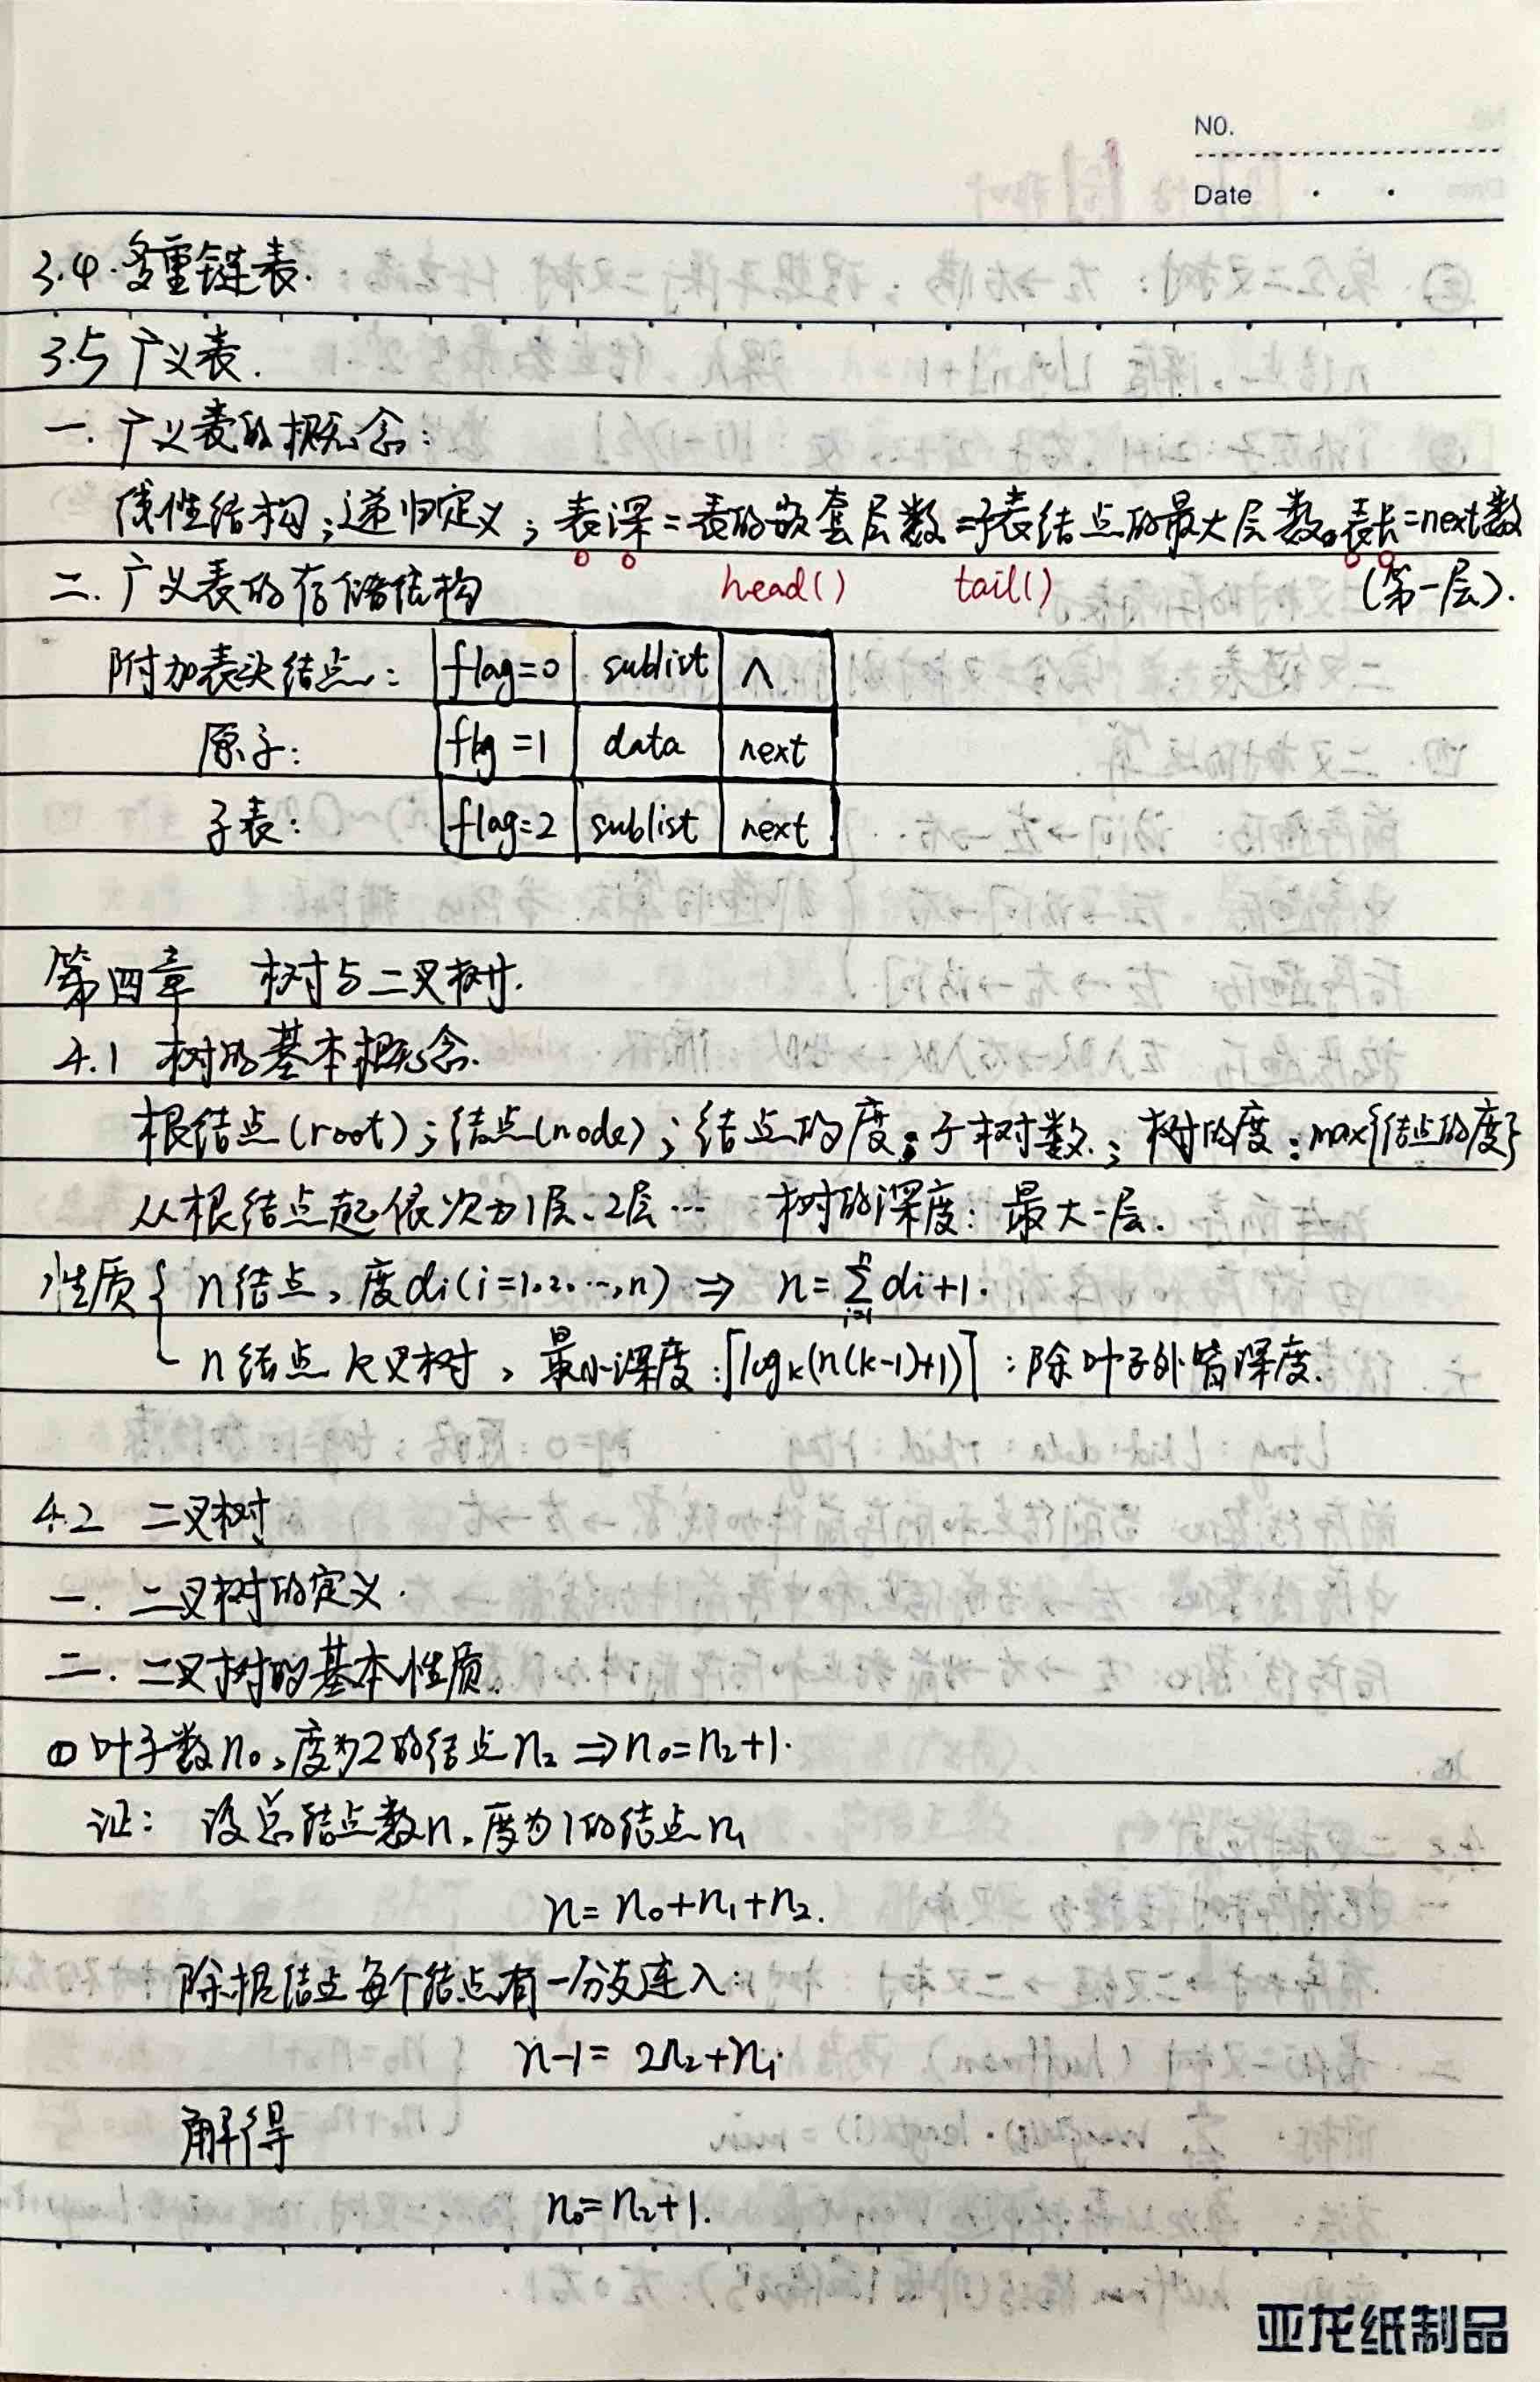 NO.
Date
3.4 多重链表.
3.5 广义表.
一. 广义表的概念:
线性结构;递归定义; 表深=表的嵌套层数=子表结点的最大层数。表长=next数
(第一层).
head() tail()
二. 广义表的存储结构
附加表头结点: flag=0 sublist ∧
原子: flag=1 data next
子表: flag=2 sublist next
第四章 树与二叉树.
4.1 树的基本概念.
根结点(root);结点(node);结点的度:子树数.; 树的度:max{结点的度}
从根结点起依次为1层、2层… 树的深度: 最大一层.
性质{ n结点,度di(i=1.2.…,n) ⇒ n=∑di+1.
i=1 n
n结点 k叉树, 最小深度:⌈logk(n(k-1)+1)⌉ :除叶子外皆深度.
4.2 二叉树
一. 二叉树的定义.
二. 二叉树的基本性质.
① 叶子数n₀,度为2的结点n₂ ⇒ n₀=n₂+1.
证: 设总结点数n,度为1的结点n₁
n=n₀+n₁+n₂.
除根结点每个结点有一分支连入:
n-1= 2n₂+n₁.
解得
n₀=n₂+1.
亚龙纸制品